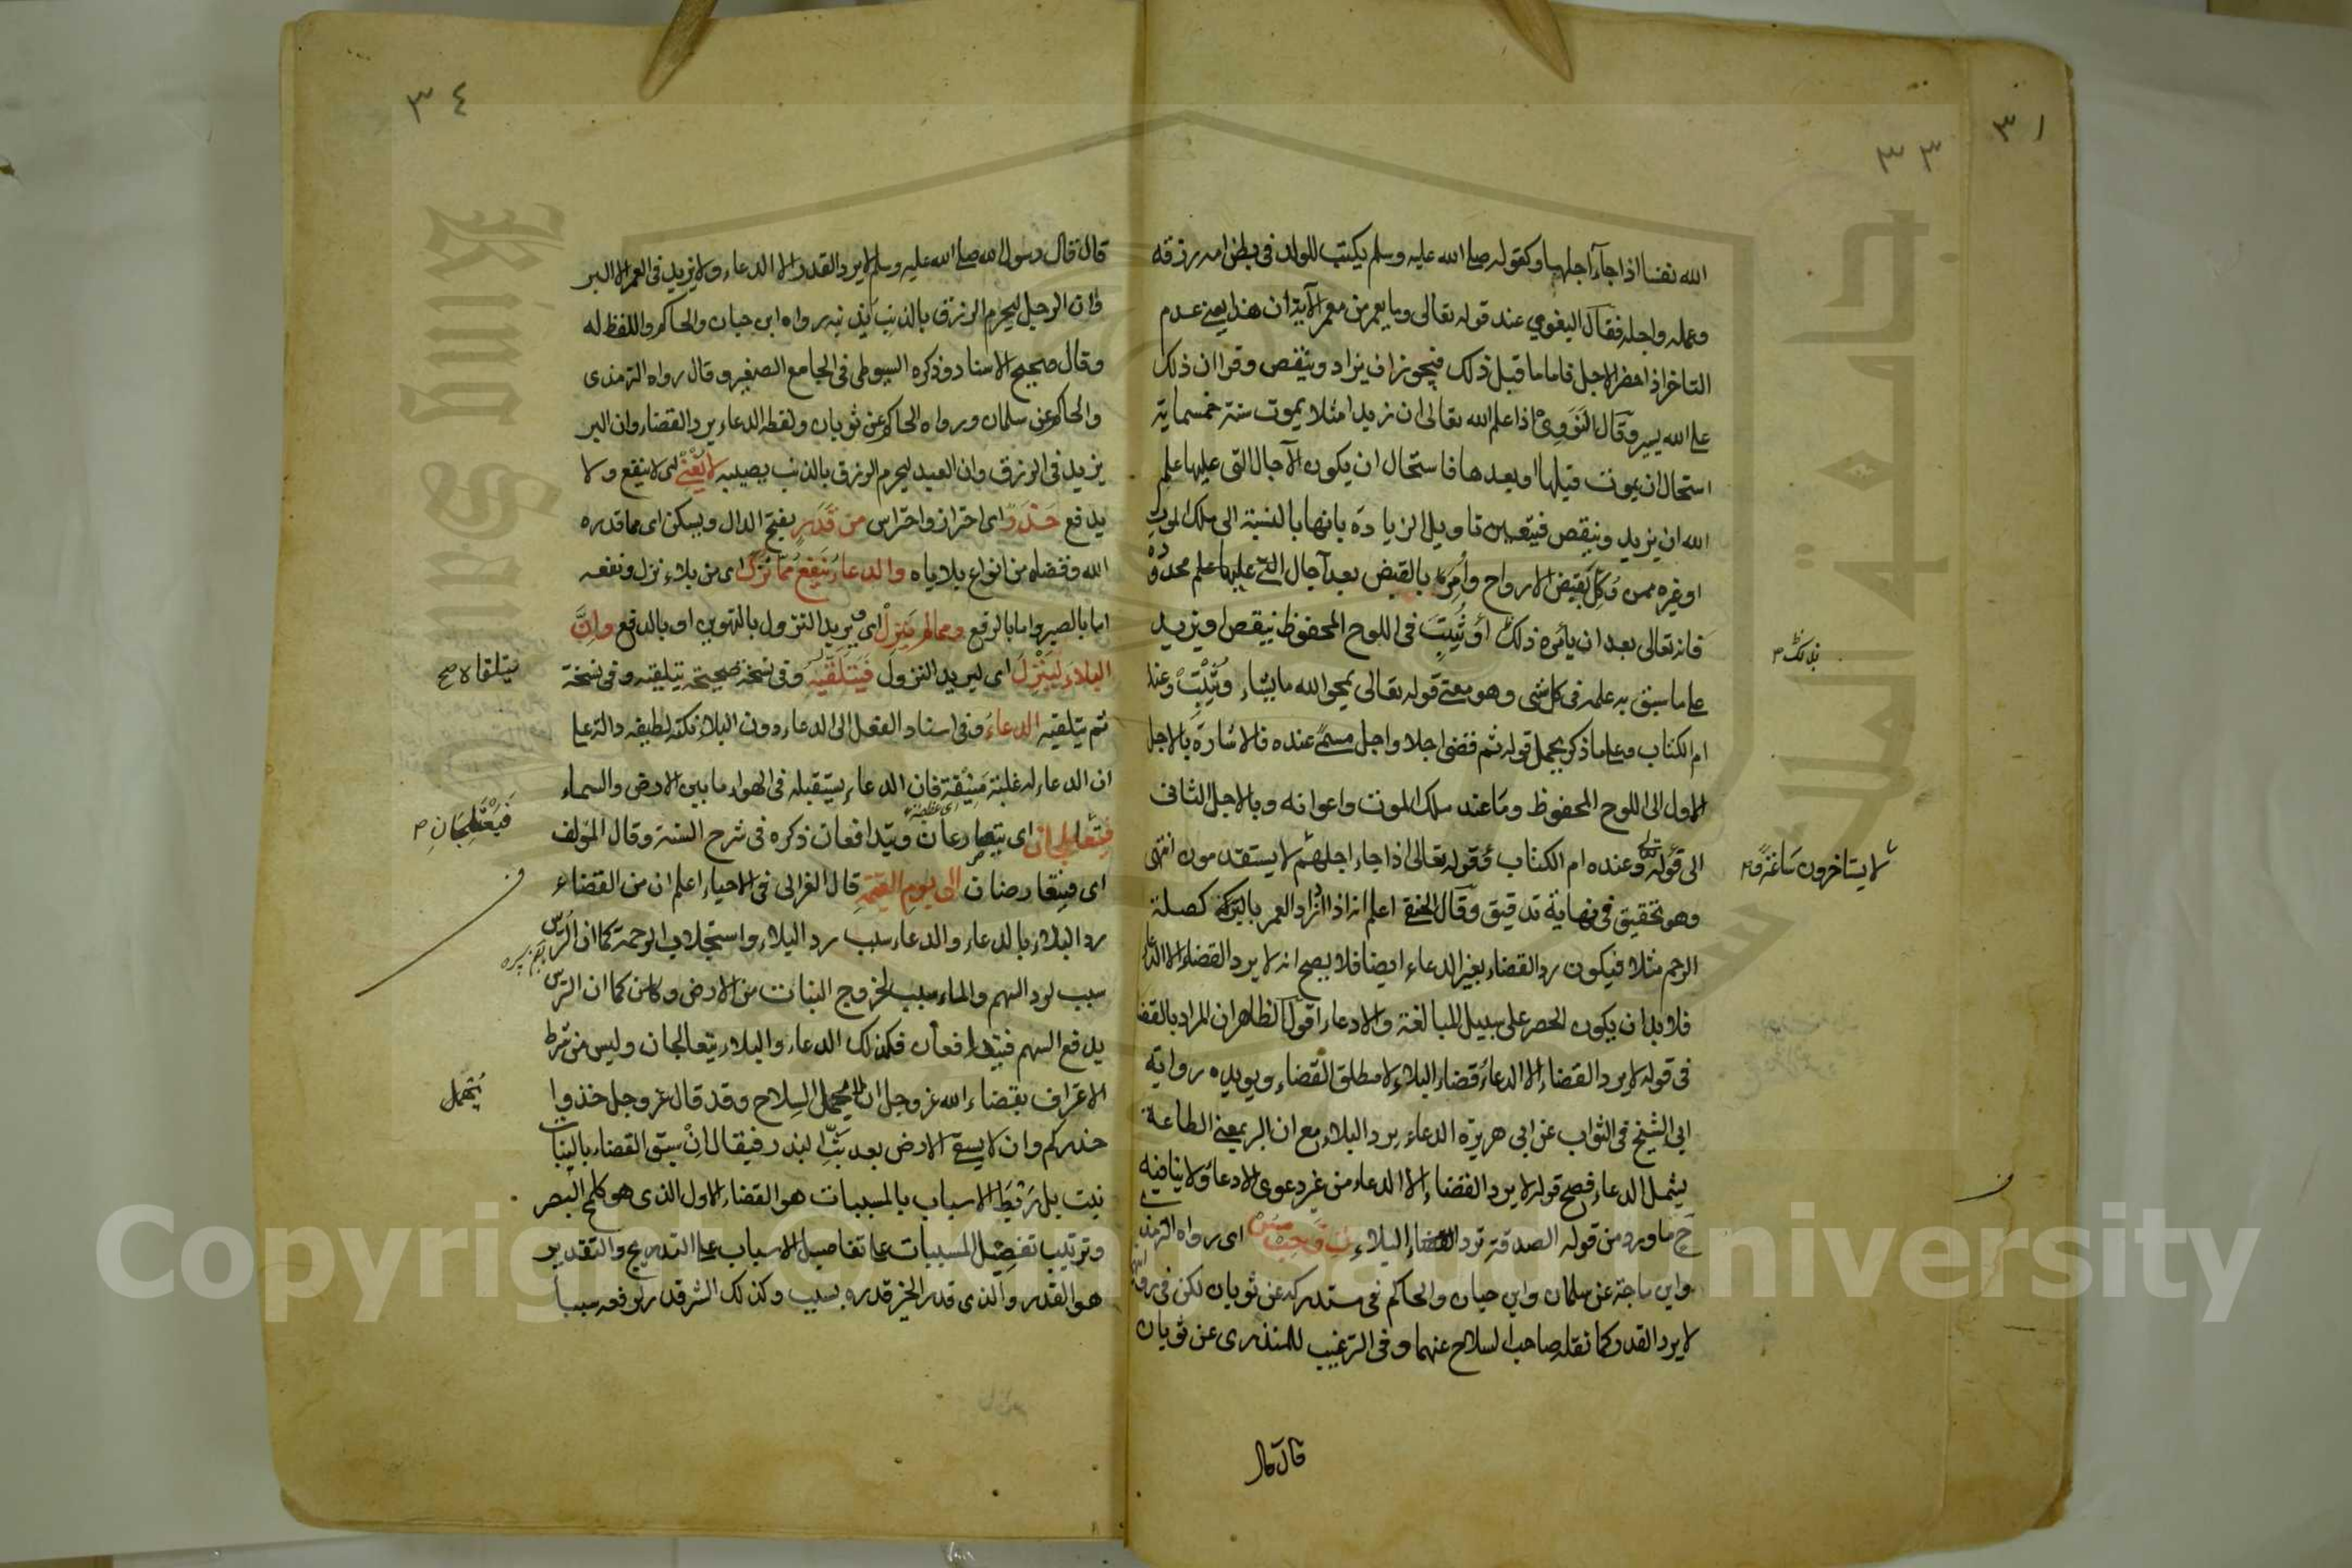 ٣١
٣٣
الله نفسا اذا جآء اجلها وكقوله صلى الله عليه وسلم يكتب للولد فى بطن امه رزقه
وعمله واجله فقال البغوى عند قوله تعالى وما يعمر من معمر الآية ان هذا يعنى عدم
التاخر اذا حضر الاجل فاما ما قبل ذلك فيجوز ان يزاد وينقص وقرا ان ذلك
على الله يسير وقال النووى اذا علم الله تعالى ان زيدا مثلا يموت سنة خمسماية
استحال ان يموت قبلها او بعدها فاستحال ان يكون الآجال التى عليها علم
الله ان يزيد وينقص فيتعين تاويل الزيادة بانها بالنسبة الى ملك الموت
او غيره ممن وكل بقبض الارواح وأمر بالقبض بعد آجال التى عليها علم محدودة
فانه تعالى بعد ان يأمره ذلك أو ثبت فى اللوح المحفوظ ينقص او يزيد
بذلك
على ما سبق به علمه فى كل شى وهو معنى قوله تعالى يمحو الله ما يشاء ويثبت وعنده
ام الكتاب وعلى ما ذكر يحمل قوله ثم قضى اجلا واجل مسمى عنده فالاشارة بالاجل
الاول الى اللوح المحفوظ وما عند ملك الموت واعوانه وبالاجل الثانى
الى قوله تعالى وعنده ام الكتاب وقوله تعالى اذا جاء اجلهم لا يستقدمون انتهى
لا يستاخرون ساعة و
وهو تحقيق فى نهاية تدقيق وقال الحنفى اعلم انه اذا ازاد العمر بالبركة كصلة
الرحم مثلا فيكون رد القضاء بغير الدعاء ايضا فلا يصح انه لا يرد القضاء الا الدعاء
فلا بد ان يكون الحصر على سبيل المبالغة والادعاء اقول الظاهر ان المراد بالقضا
فى قوله لا يرد القضاء الا الدعاء قضاء البلاء لا مطلق القضاء ويويده رواية
ابى الشيخ فى الثواب عن ابى هريرة الدعاء يرد البلاء مع ان البر بمعنى الطاعة
يشمل الدعاء فصح قوله لا يرد القضاء الا الدعاء من غير دعوى الادعاء ولا ينافيه
ح ما ورد من قوله الصدقة ترد القضاء البلاء ت ق حب مس اى رواه الترمذى
وابن ماجة عن سلمان وابن حبان والحاكم فى مستدركه عن ثوبان لكن فى روايتهما
لا يرد القدر كما نقله صاحب السلاح عنهما وفى الترغيب للمنذرى عن ثوبان
قال قال
٣٤
قال قال رسول الله صلى الله عليه وسلم لا يرد القدر الا الدعاء ولا يزيد فى العمر الا البر
وان الرجل ليحرم الرزق بالذنب يذنبه رواه ابن حبان والحاكم واللفظ له
وقال صحيح الاسناد وذكره السيوطى فى الجامع الصغير وقال رواه الترمذى
والحاكم عن سلمان ورواه الحاكم عن ثوبان ولفظه الدعاء يرد القضاء وان البر
يزيد فى الرزق وان العبد ليحرم الرزق بالذنب يصيبه لا يغنى اى لا ينفع ولا
يدفع حذر اى احتراز واحتراس من قدر بفتح الدال ويسكن اى مما قدره
الله وقضاه من انواع بلاياه والدعاء ينفع مما نزل اى من بلاء نزل ونفعه
اما بالصبر واما بالرفع ومما لم ينزل اى يريد النزول بالتهوين او بالدفع وان
البلاء لينزل اى ليريد النزول فيتلقيه وفى نسخة صحيحة يتلقيه وفى نسخة
يتلقا لا صح
ثم يتلقيه الدعاء وفى اسناد الفعل الى الدعاء دون البلاء نكتة لطيفه دالة على
ان الدعاء له غلبة فان الدعاء يستقبله فى الهواء ما بين الارض والسماء
فيتعالجان اى يتصارعان ويتدافعان ذكره فى شرح السنة وقال المؤلف
فيعتلجان
اى فيتعارضان الى يوم القيمة قال الغزالى فى الاحياء اعلم ان من القضاء
رد البلاء بالدعاء والدعاء سبب رد البلاء واستجلاب الرحمة كما ان الترس
سبب لرد السهم والماء سبب لخروج النبات من الارض وكما ان الترس
يدفع السهم فيتدافعان فكذلك الدعاء والبلاء يتعالجان وليس من شرط
الاعتراف بقضاء الله عز وجل ان لا يحمل السلاح وقد قال عز وجل خذوا
يتحمل
حذركم وان لا يسقى الارض بعد بث البذر فيقال ان سبق القضاء بالنبات
نبت بل ربط الاسباب بالمسببات هو القضاء الاول الذى هو كلمح البصر
وترتيب تفصيل المسببات على تفاصيل الاسباب على التدريج والتقدير
هو القدر والذى قدر الخير قدره بسبب وكذلك الشر قدر لرفعه سببا
Copyright © King Saud University
جامعة الملك سعود
King Saud